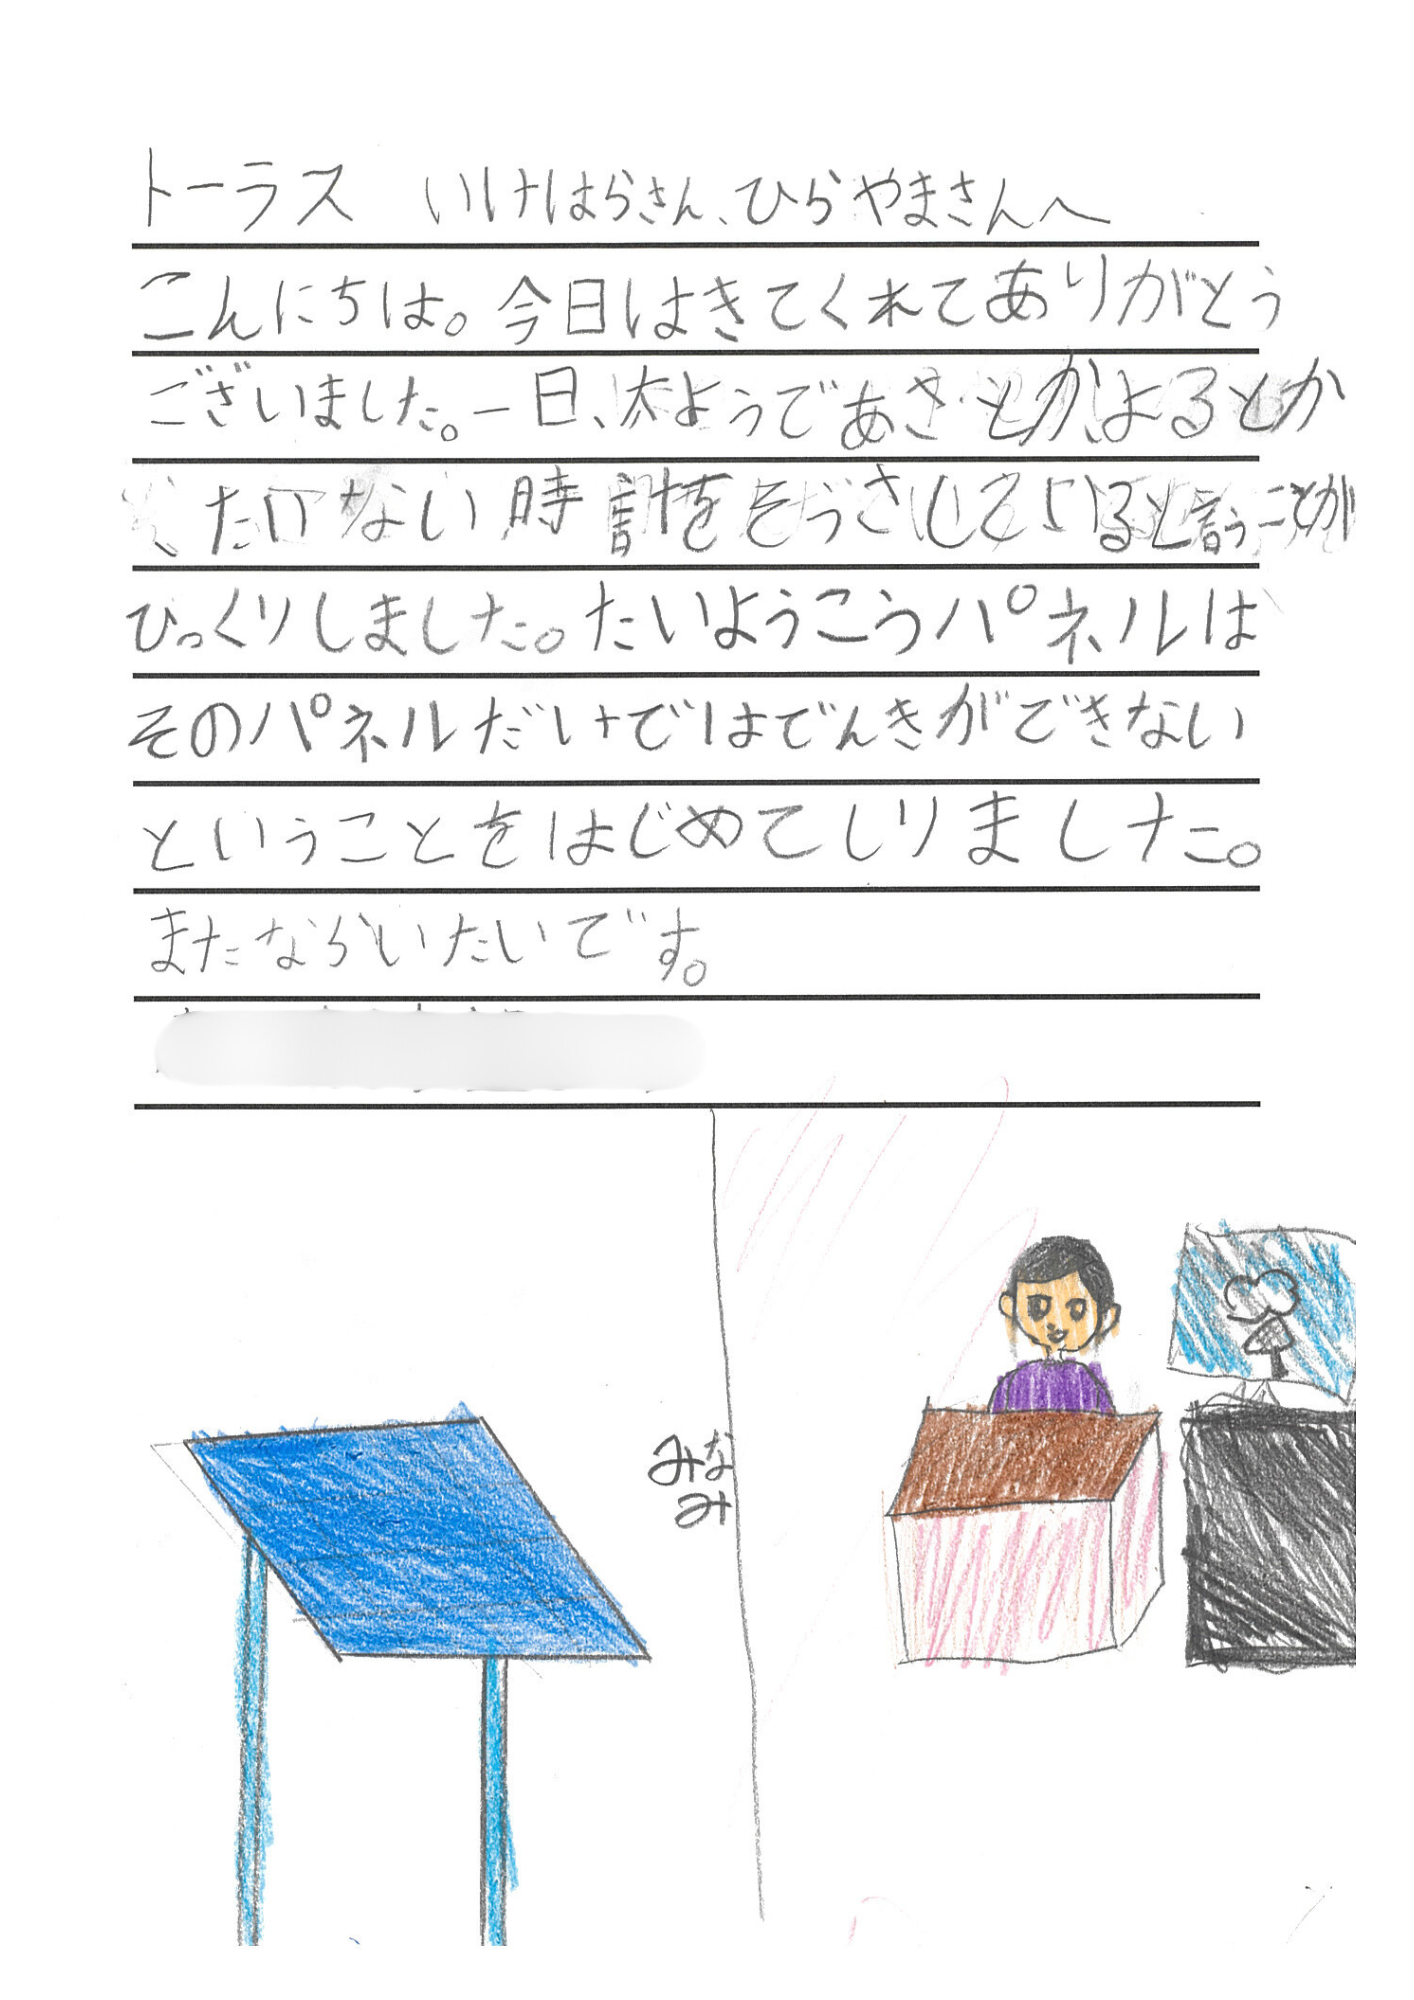 トーラス　いけはらさん、ひらやまさんへ
こんにちは。今日はきてくれてありがとう
ございました。一日、太ようであさとか、よるとか
たいない時計をそうさしていると言うことが
びっくりしました。たいようこうパネルは
そのパネルだけではでんきができない
ということをはじめてしりました。
またならいたいです。
みな
み